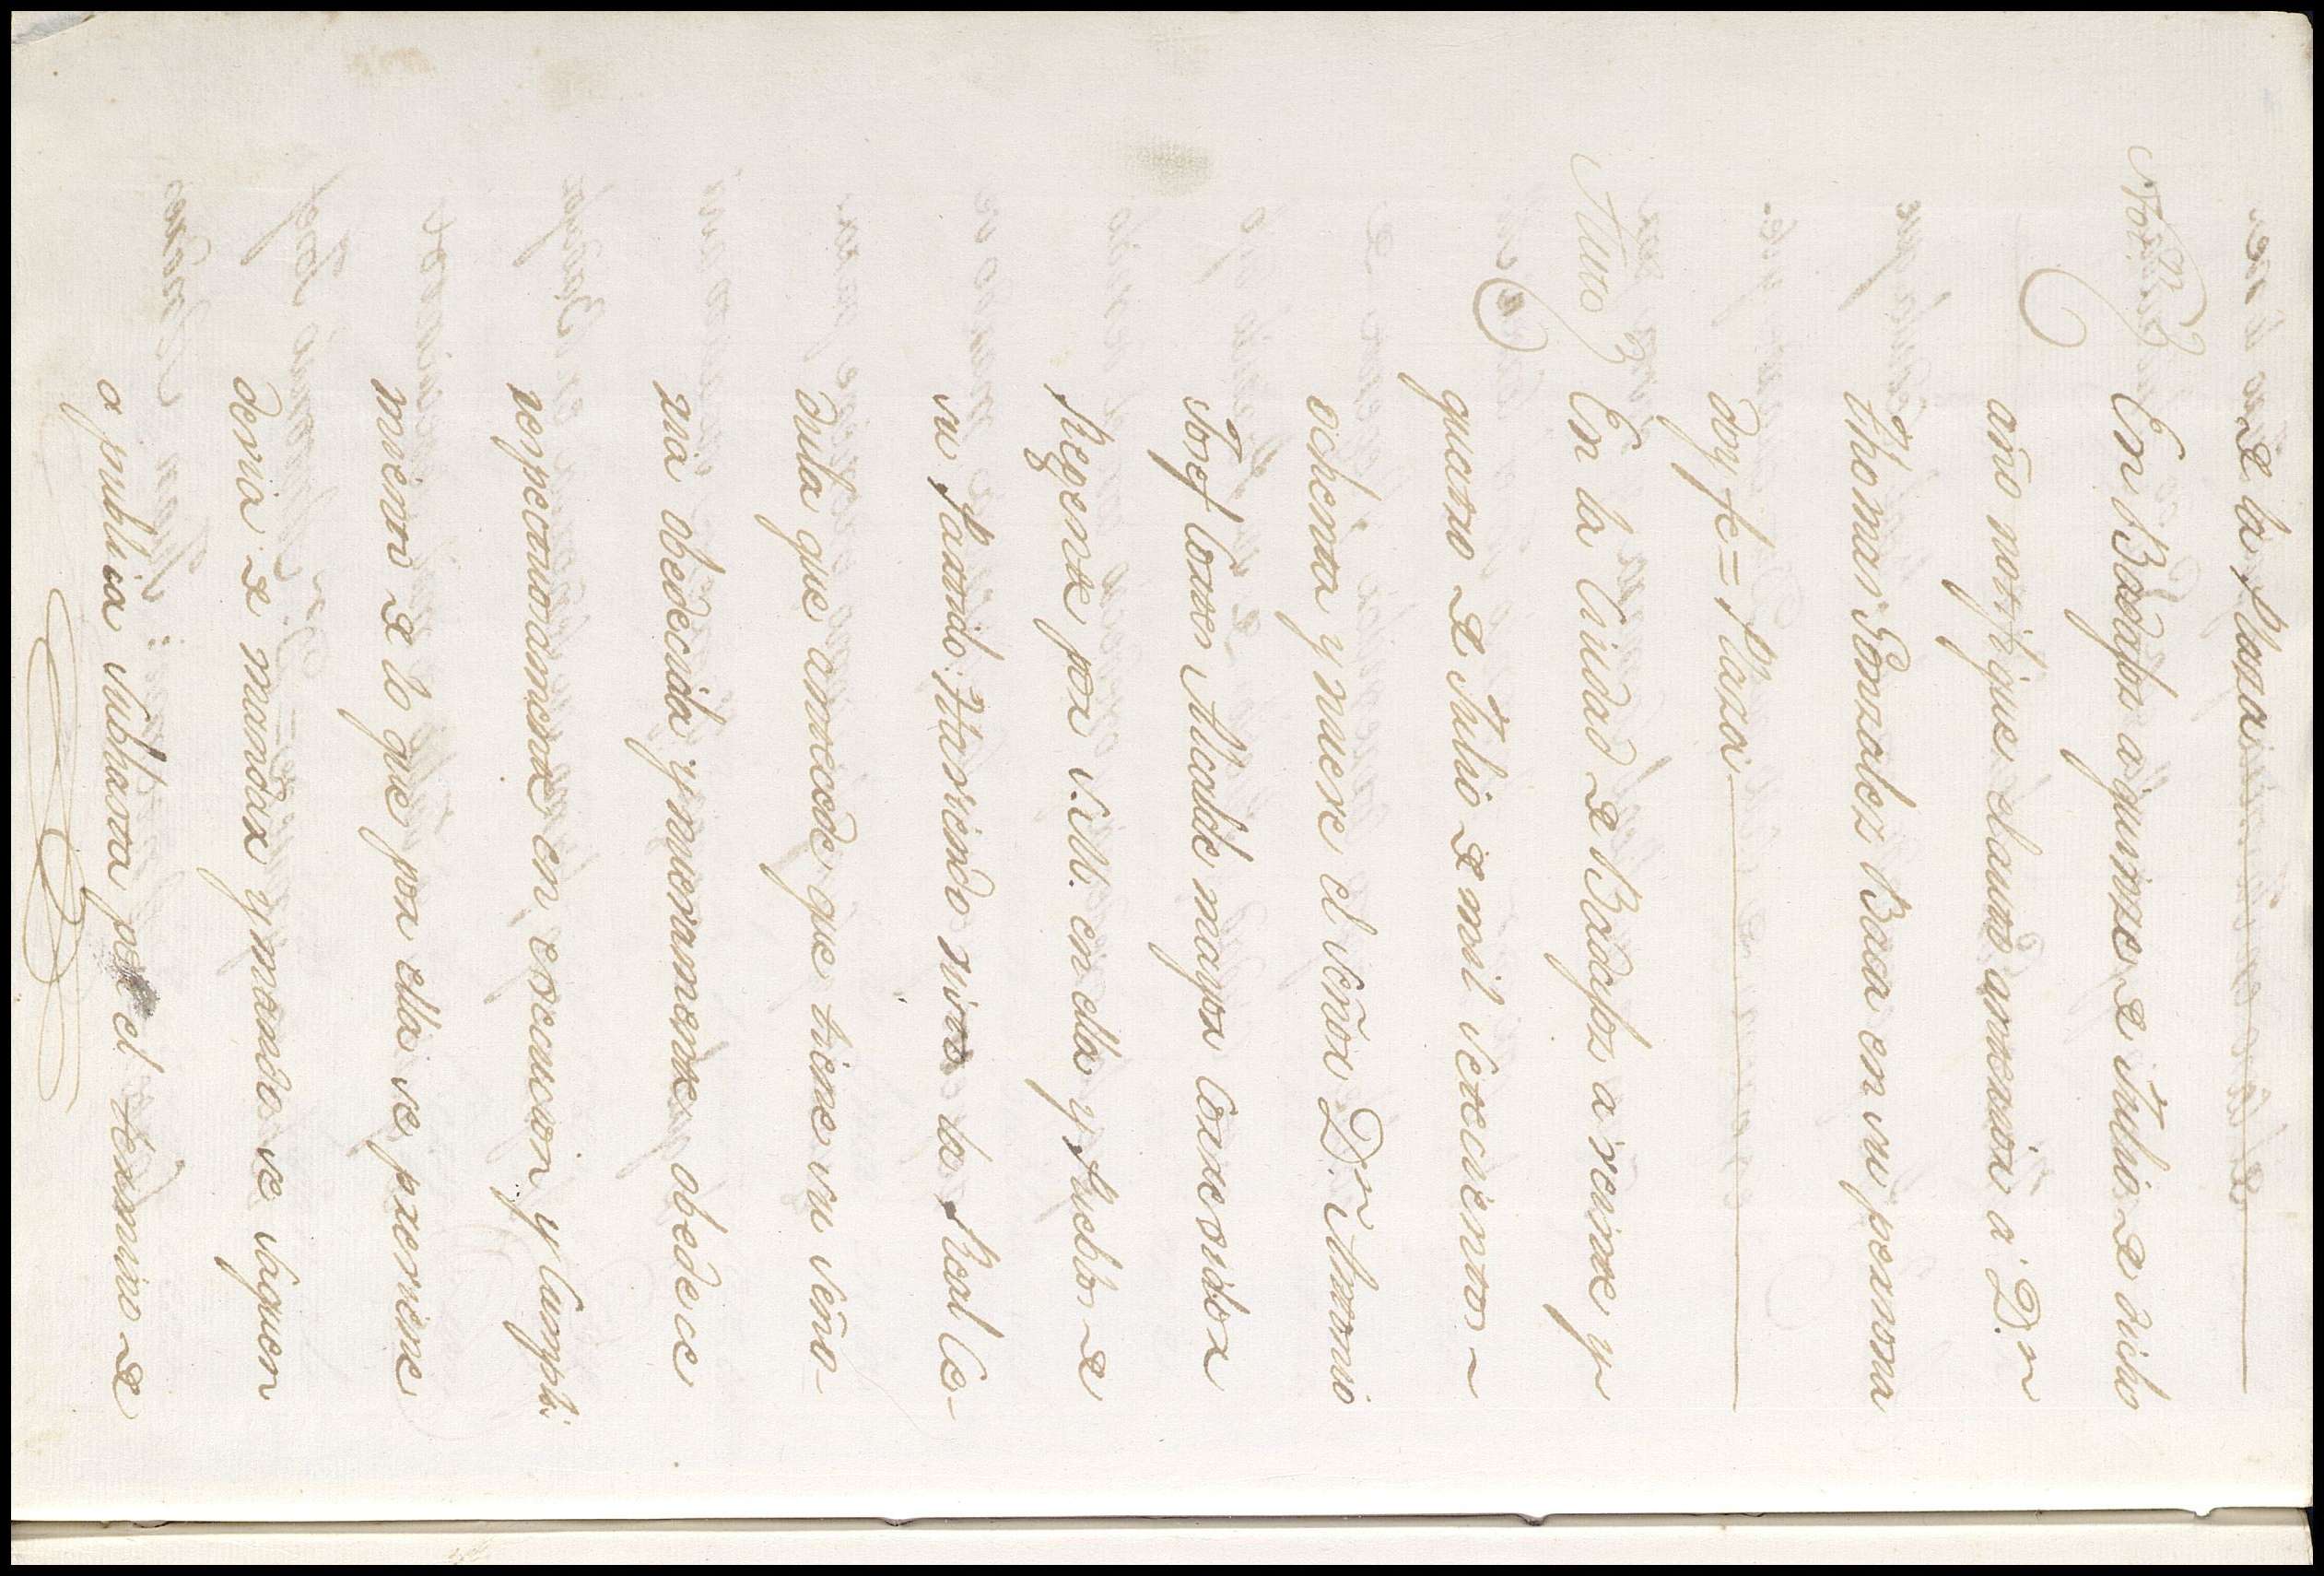 de la Plaza
Not.ⁿ En Badajoz a quinze de Julio de dicho
año notifique el auto antezᵗᵉ a D.ⁿ
Thomas Gonzalez Baca en su persona
doy fe = Plaza
Auto En la Ciudad de Badajoz a veinte y
quatro de Julio de mil setecientos
ochenta y nueve el señor D.ⁿ Antonio
Josef Cortes Alcalde mayor Correxidor
Regente por S.M. en ella y Pueblos de
su Partido: Haviendo visto la Real Ce-
dula que antecede que tiene su seño-
ria obedecida y nuevamente obedece
respectuosamente en execucion y Cumpli
miento de lo que por ella se previene
devia de mandar y mando se saquen
a publica subhasta por el termino de